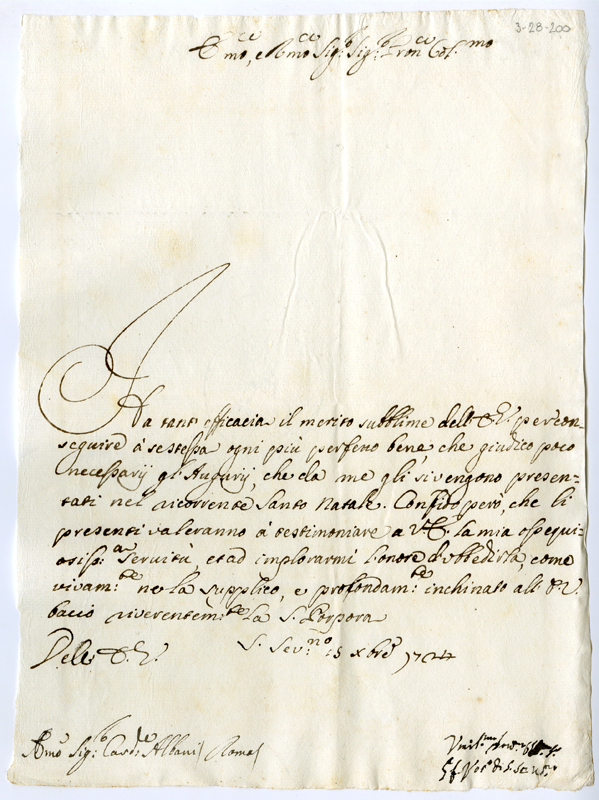 3-28-200
Emo, e Rmo Sig.r Sig.r Pron Col.mo
Ha tant' efficacia il merito subblime dell' E.V. per con-
seguire à se stessa ogni più perfetto bene che giudico poco
necessarij gl' Augurij, che da me gli si vengono presen-
tati nel ricorrente Santo Natale. Confido però, che li
presenti valeranno à testimoniare a V.E. la mia ossequi-
osiss.a Servitù, et ad implorarmi l'onore d'obbedirla, come
vivam.te ne la supplico, e profondam.te inchinato all' E.V.
bacio riverentem.te La S. Porpora
Dell' E.V.
S. Sev.no 15 xbre 1724
Rmo Sig.r Card.le Albani Roma